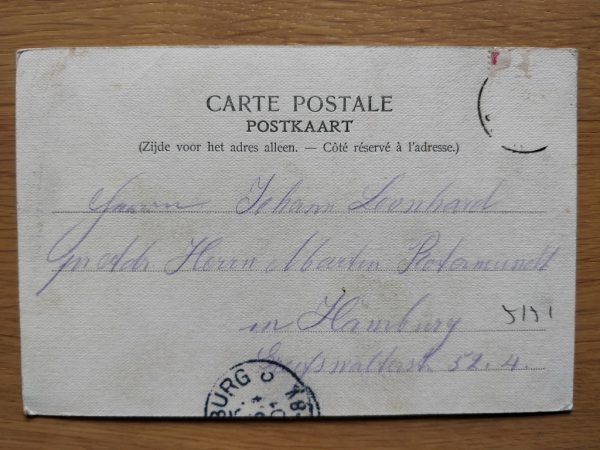 CARTE POSTALE
POSTKAART
(Zijde voor het adres alleen. — Côté réservé à l'adresse.)
Herrn Johann Leonhard
pr Adr Herrn Martin Rotermundt
in Hamburg
52. 4.
BURG